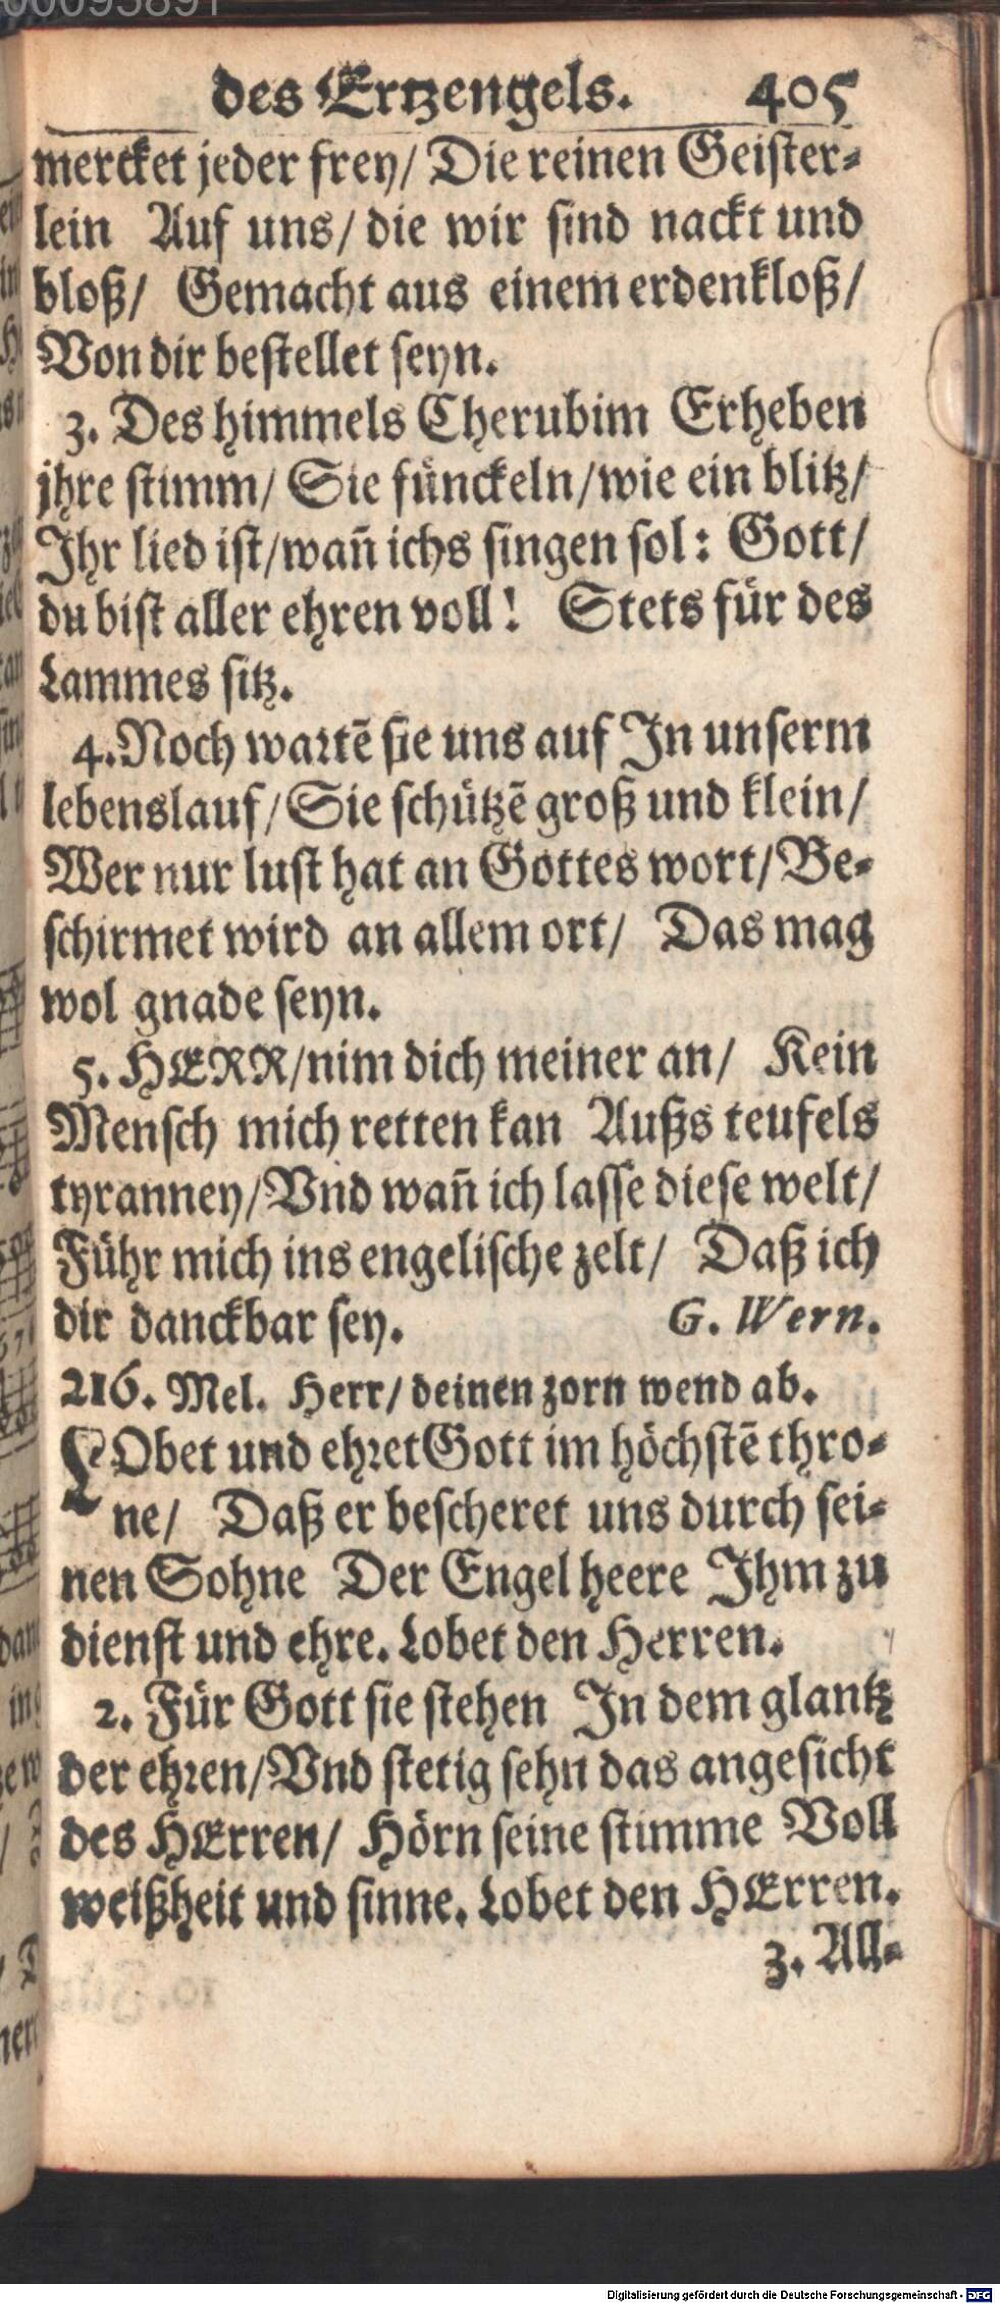 des Ertzengels. 405
mercket jeder frey/ Die reinen Geister-
lein Auf uns/ die wir sind nackt und
bloß/ Gemacht aus einem erdenkloß/
Von dir bestellet seyn.
3. Des himmels Cherubim Erheben
jhre stimm/ Sie fünckeln/wie ein blitz/
Ihr lied ist/wañ ichs singen sol: Gott/
du bist aller ehren voll! Stets für des
Lammes sitz.
4. Noch wartẽ sie uns auf In unserm
lebenslauf/ Sie schützẽ groß und klein/
Wer nur lust hat an Gottes wort/ Be-
schirmet wird an allem ort/ Das mag
wol gnade seyn.
5. HERR/nim dich meiner an/ Kein
Mensch mich retten kan Außs teufels
tyranney/ Vnd wañ ich lasse diese welt/
Führ mich ins engelische zelt/ Daß ich
dir danckbar sey. G. Wern.
216. Mel. Herr/ deinen zorn wend ab.
LObet und ehret Gott im höchstẽ thro-
ne/ Daß er bescheret uns durch sei-
nen Sohne Der Engel heere Ihm zu
dienst und ehre. Lobet den Herren.
2. Für Gott sie stehen In dem glantz
der ehren/ Vnd stetig sehn das angesicht
des HErren/ Hörn seine stimme Voll
weißheit und sinne. Lobet den HErren.
3. All-
Digitalisierung gefördert durch die Deutsche Forschungsgemeinschaft - DFG